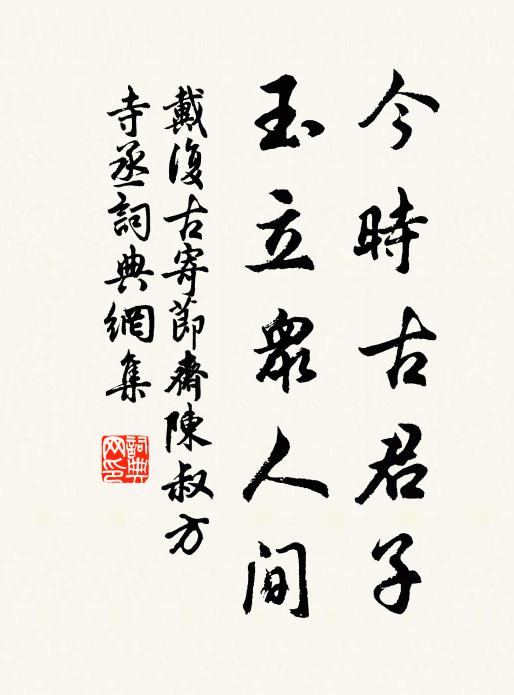 今時古君子
玉立衆人間
戴復古寄節齋陳叔方
寺丞詞典網集
詞典網印